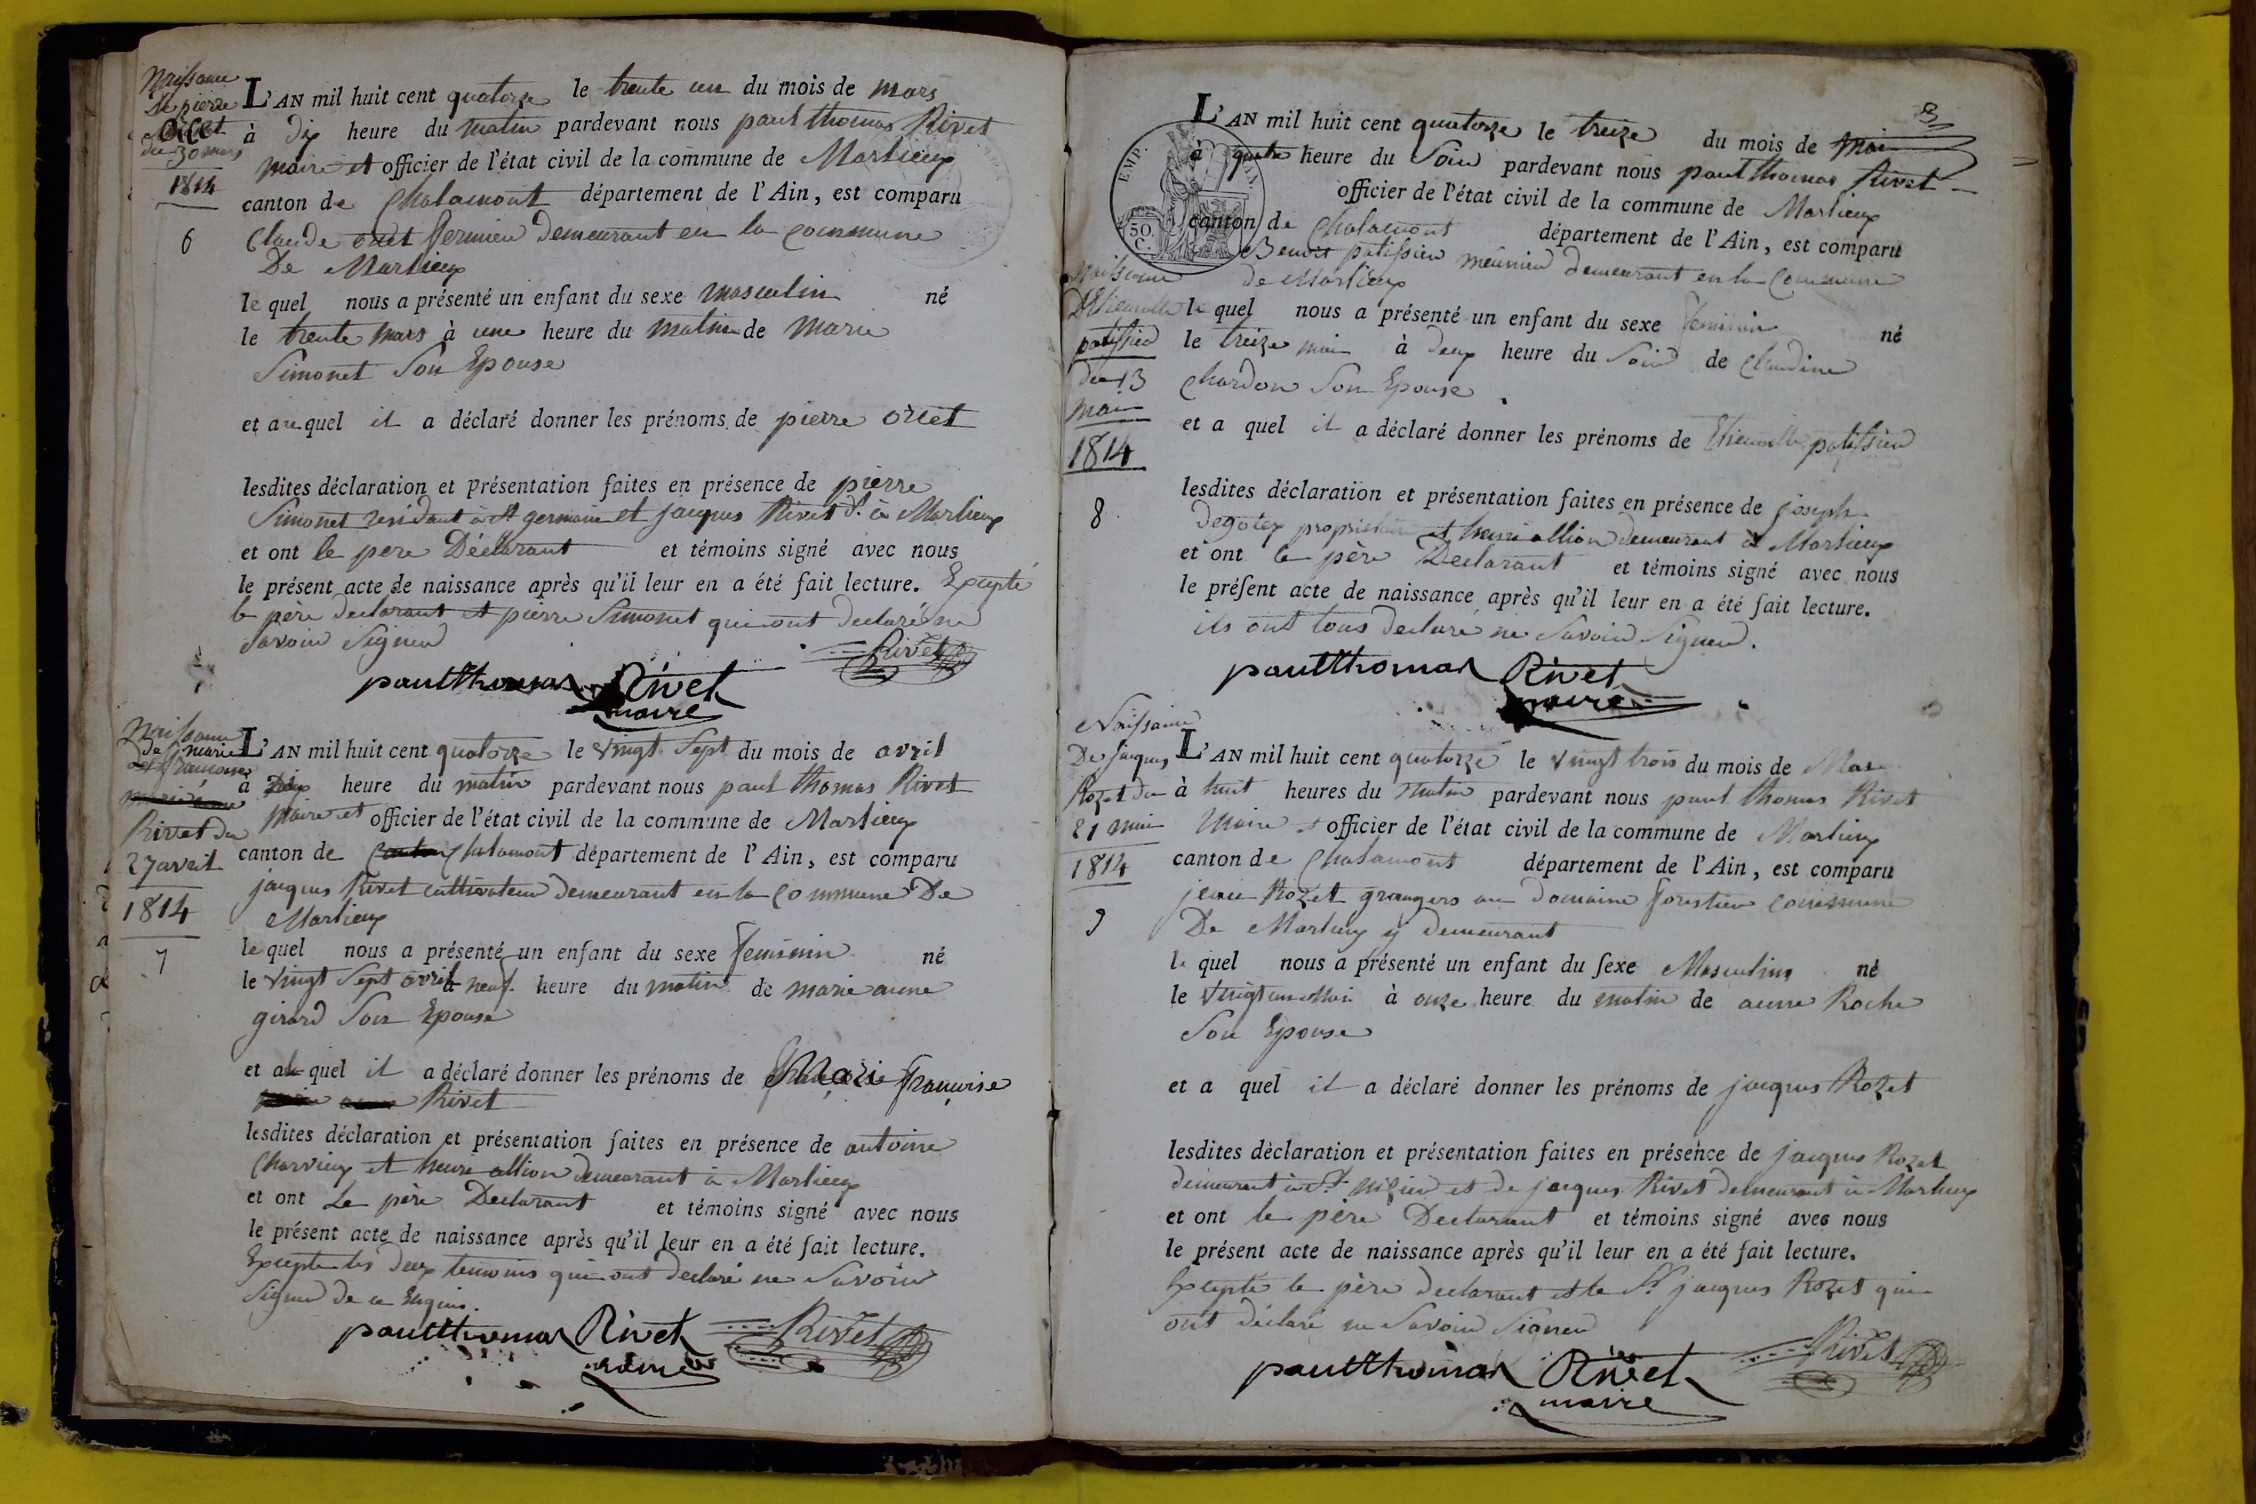 Naissance
de pierre
orret
du 30 mars
1814
6
L'AN mil huit cent quatorze le trente un du mois de mars
à dix heure du matin pardevant nous paul thomas Rivet
maire et officier de l'état civil de la commune de Marlieux
canton de Chalamont département de l'Ain, est comparu
Claude orret fermier demeurant en la commune
De Marlieux
le quel nous a présenté un enfant du sexe masculin né
le trente mars à une heure du matin de marie
Simonet Son Epouse
et au quel il a déclaré donner les prénoms de pierre orret
lesdites déclaration et présentation faites en présence de pierre
Simonet residant à St germain et jacques Rivet dt à Marlieux
et ont le pere Déclarant et témoins signé avec nous
le présent acte de naissance après qu'il leur en a été fait lecture. Excepté
le père declarant et pierre Simonet qui ont declaré ne
Savoir Signer
Rivet
paul thomas Rivet
maire
Naissance
de marie
françoise
Rivet du
27 avril
1814
7
L'AN mil huit cent quatorze le vingt Sept du mois de avril
à Dix heure du matin pardevant nous paul thomas Rivet
maire et officier de l'état civil de la commune de Marlieux
canton de Chalamont département de l'Ain, est comparu
jacques Rivet cultivateur demeurant en la commune De
Marlieux
le quel nous a présenté un enfant du sexe feminin né
le vingt Sept avril à neuf heure du matin de marie anne
girard Son Epouse
et au quel il a déclaré donner les prénoms de Mari françoise
Rivet
lesdites déclaration et présentation faites en présence de antoine
Charvieux et henri allion demeurant à Marlieux
et ont Le père Declarant et témoins signé avec nous
le présent acte de naissance après qu'il leur en a été fait lecture.
Excepte les deux temoins qui ont declaré ne Savoir
Signer de ce Enquis.
paul thomas Rivet Rivet
maire
8
L'AN mil huit cent quatorze le treize du mois de mai
à quatre heure du Soir pardevant nous paul thomas Rivet
officier de l'état civil de la commune de Marlieux
canton de Chalamont département de l'Ain, est comparu
EMP.
50.
C.
Benoit patissier meunier demeurant en la Commune
de Marlieux
Naissance
D'Etiennette
patissier
du 13
mai
1814
8
le quel nous a présenté un enfant du sexe feminin né
le treize mai à deux heure du Soir de Claudine
Chardon Son Epouse
et a quel il a déclaré donner les prénoms de Etiennette patissier
lesdites déclaration et présentation faites en présence de joseph
degotex proprietaire et henri allion demeurant à Marlieux
et ont le père Declarant et témoins signé avec nous
le présent acte de naissance après qu'il leur en a été fait lecture.
ils ont tous declaré ne Savoir Signer.
paul thomas Rivet
maire
Naissance
De Jacques
Rozet du
21 mai
1814
9
L'AN mil huit cent quatorze le vingt trois du mois de Mai
à huit heures du matin pardevant nous paul thomas Rivet
Maire et officier de l'état civil de la commune de Marlieux
canton de Chalamont département de l'Ain, est comparu
jean Rozet grangers au Domaine forestier commune
De Marlieux y demeurant
le quel nous a présenté un enfant du sexe Masculin né
le vingt un Mai à onze heure du matin de anne Roche
Son Epouse
et a quel il a déclaré donner les prénoms de jacques Rozet
lesdites déclaration et présentation faites en présence de jacques Rozet
demeurant à St nizier et de jacques Rivet demeurant à Marlieux
et ont le père Declarant et témoins signé avec nous
le présent acte de naissance après qu'il leur en a été fait lecture.
Excepté le père declarant et le Sr jacques Rozet qui
ont déclaré ne Savoir Signer
Rivet
paul thomas Rivet
maire